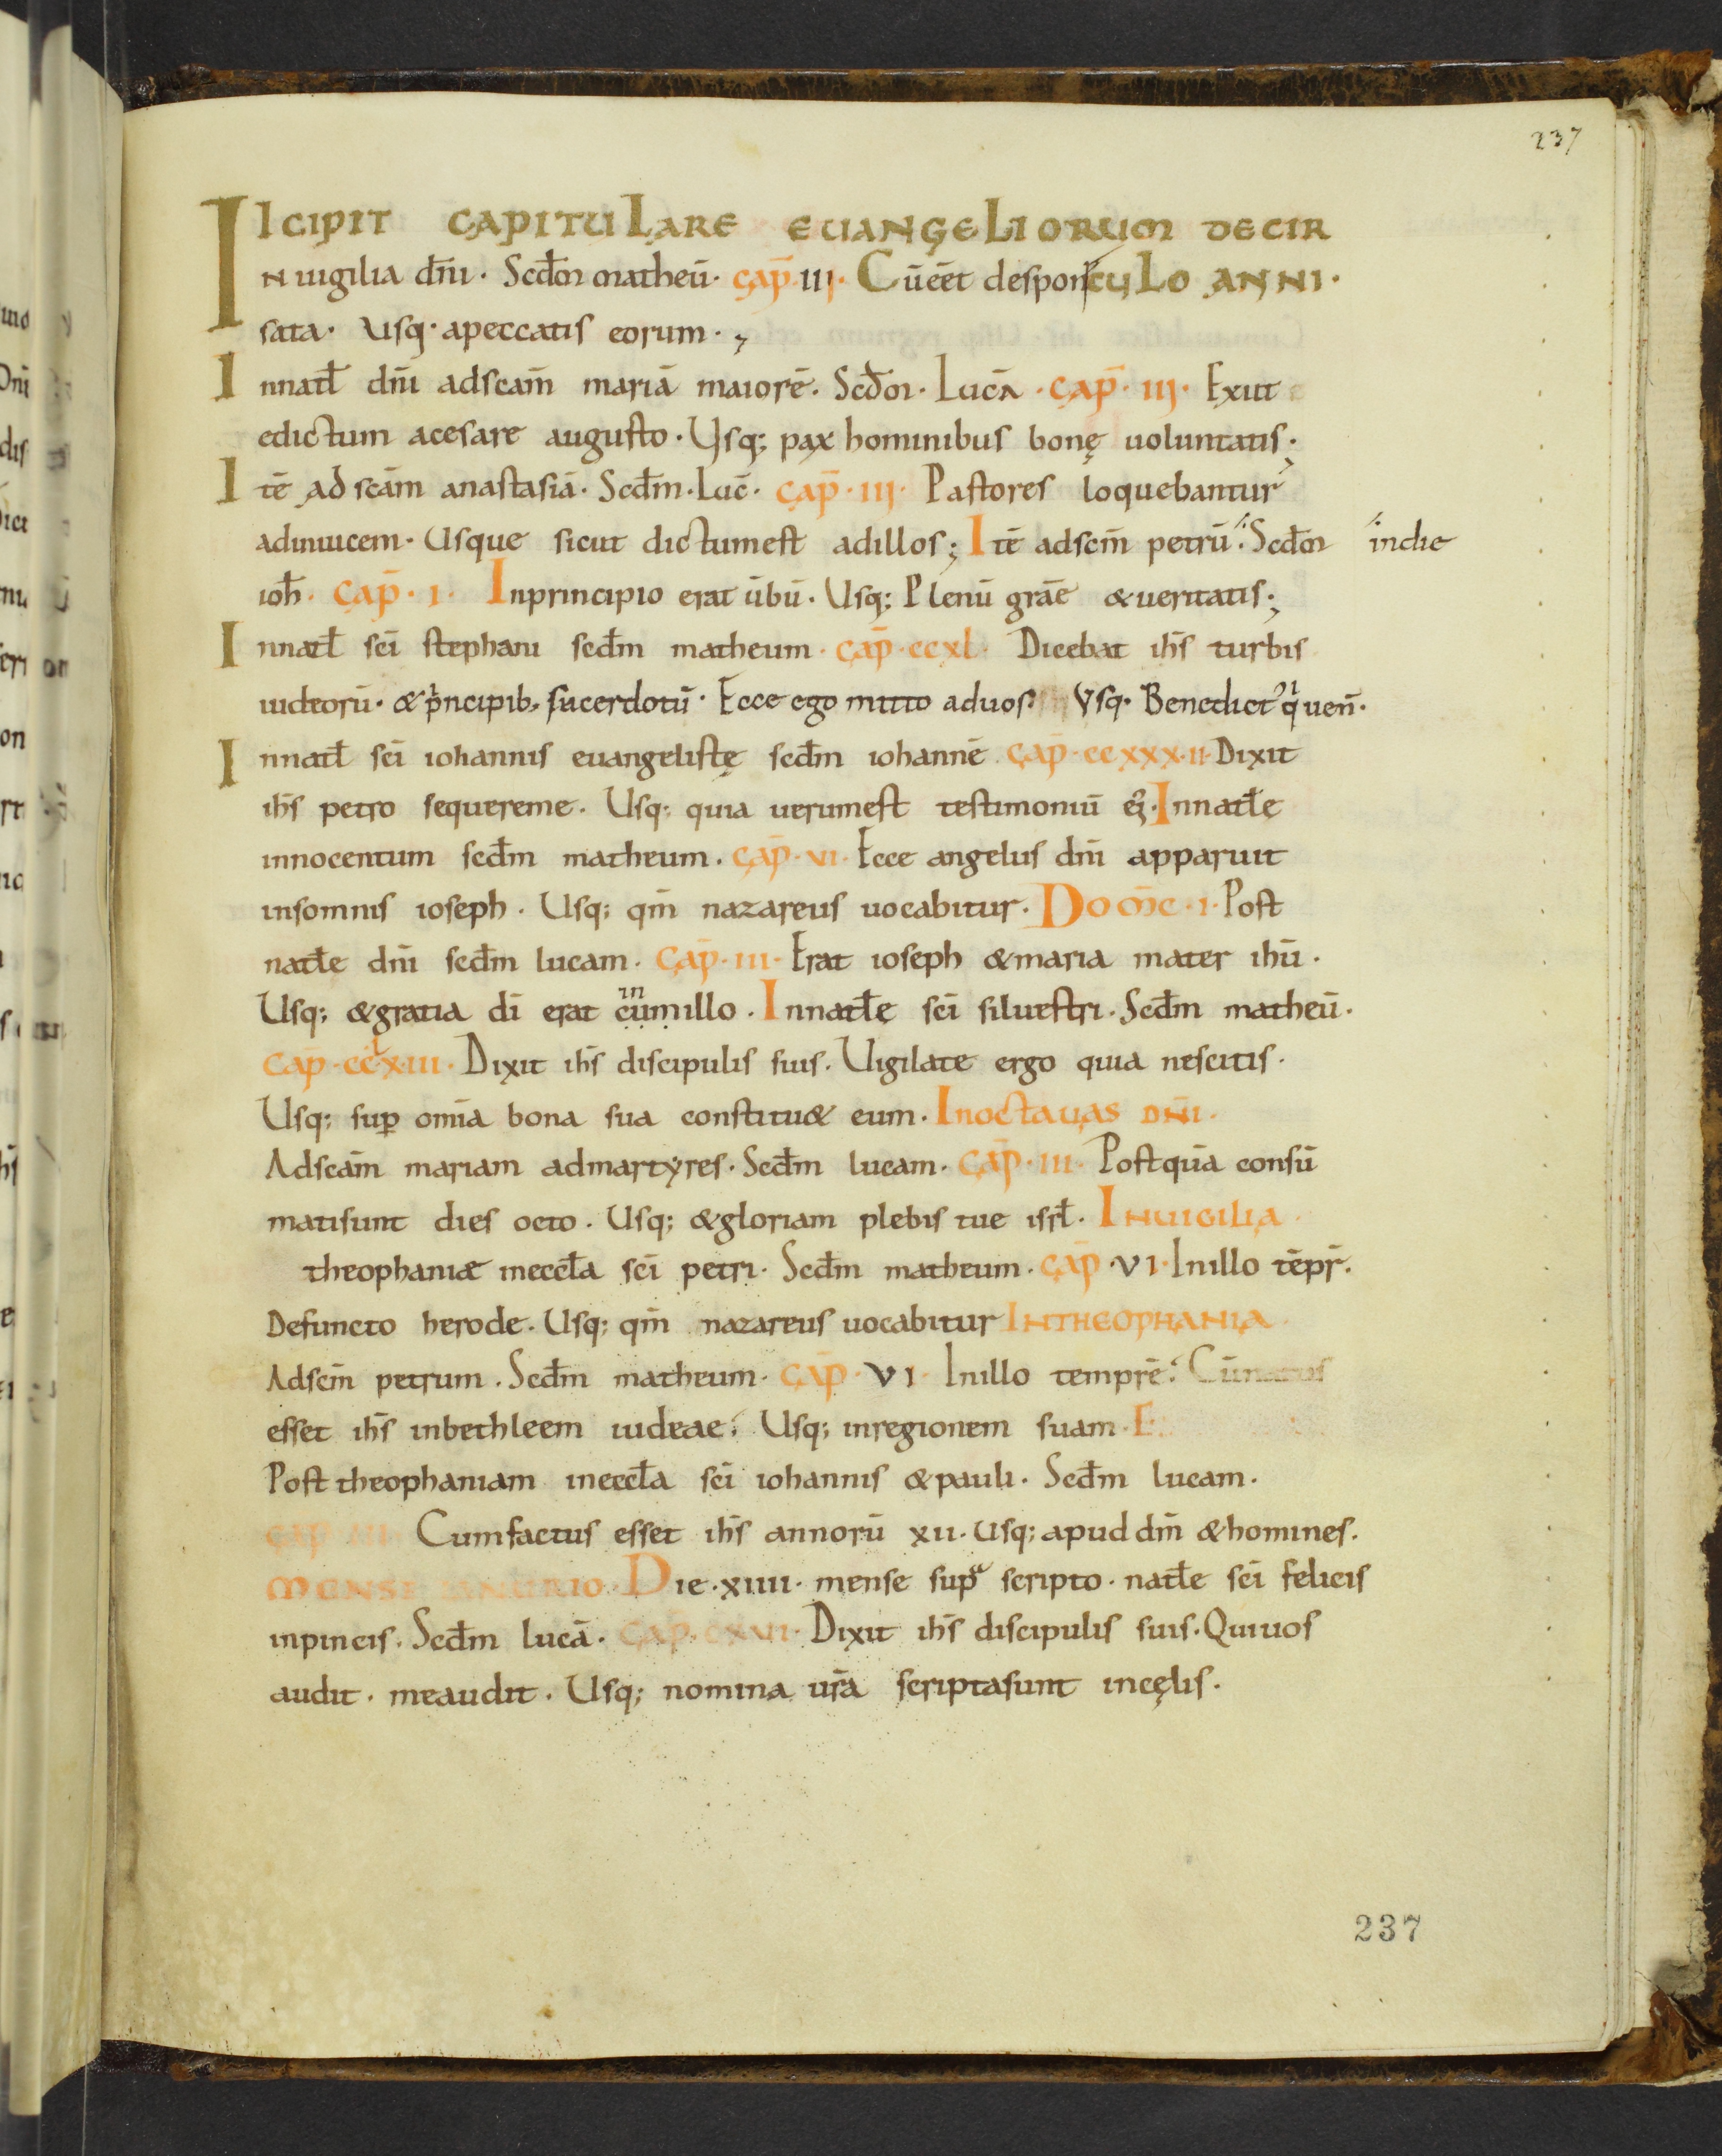 237
IICIPIT CAPITULARE EUANGELIORUM DECIR
N uigilia dn̄i. Scd̄m matheū. cap̄. III. Cūēēt desponCULO ANNI.
sata. Usq. apeccatis eorum.
Innatł dn̄i adscam̄ mariā maiorē. Scd̄m. Lucā. cap̄. III. Exiit
edictum acesare augusto. Usq; pax hominibus bonę uoluntatis;
Itē ad scām anastasiā. Scd̄m. Luc̄. cap̄. III. Pastores loquebantur
adinuicem. Usque sicut dictumest adillos; Itē adscm̄ petrū. Scd̄m indie
ioh̄. cap̄. I. Inprincipio erat ūbū. Usq; Plenū grāe &ueritatis;
Innatł sc̄i stephani scd̄m matheum. cap̄. ccxl. Dicebat ih̄s turbis
iudeorū. & pͥncipib; sacerdotū. Ecce ego mitto aduos. Vsq. Benedict᾿ qͥ uen̄.
Innatł sc̄i iohannis euangelistę scd̄m iohannē cap̄. ccxxx.II. Dixit
ih̄s petro sequereme. Usq; quia uerumest testimoniū ei᾿. Innatłe
innocentum scd̄m matheum. cap̄. VI. Ecce angelus dn̄i apparuit
insomnis ioseph. Usq; qm̄ nazareus uocabitur. Dom̄c. I. Post
natłe dn̄i scd̄m lucam. cap̄. III. Erat ioseph &maria mater ih̄u.
Usq; &gratia dī erat cumillo. in Innatłe sc̄i siluestri. Scd̄m matheū.
cap̄. cclxIII. Dixit ih̄s discipulis suis. Uigilate ergo quia nescitis.
Usq; sup̄ omīa bona sua constitu& eum. Inoctauas DN̄I.
Adscām mariam admartyres. Scd̄m lucam. cap̄. III. Postquā consū
matisunt dies octo. Usq; &gloriam plebis tue isrł. INUIGILIA
theophaniæ ineccła sc̄i petri. Scd̄m matheum. cap̄. VI. Inillo tēpr̄.
Defuncto herode. Usq; qm̄ nazareus uocabitur INTHEOPHANIA
Adscm̄ petrum. Scd̄m matheum. cap̄. VI. Inillo temprē. Cūnatus
esset ih̄s inbethleem iudeae. Usq; inregionem suam. E
Post theophaniam ineccła sc̄i iohannis &pauli. Scd̄m lucam.
cap̄ III Cumfactus esset ih̄s annorū xii. Usq; apud dm̄ &homines.
MENSE IANURIO. Die. xiiii. mense supᵃ scripto. natłe sc̄i felicis
inpincis. Scd̄m lucā. cap̄. cxvi. Dixit ih̄s discipulis suis. Quiuos
audit. meaudit. Usq; nomina ur̄a scriptasunt incęlis.
237